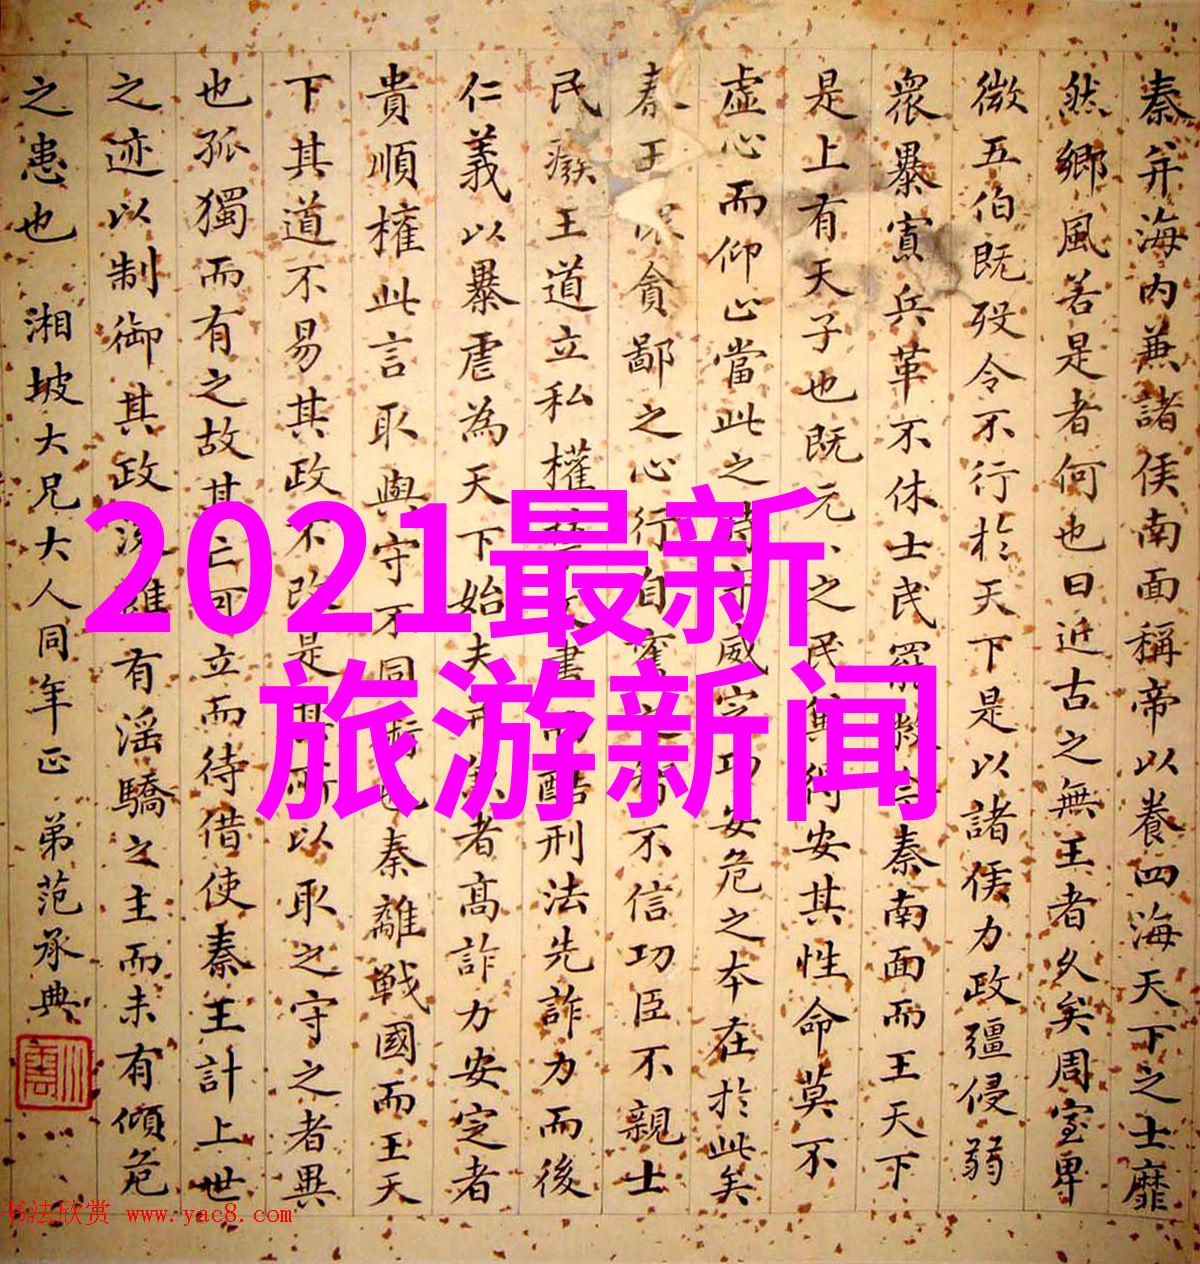 秦并海内兼諸侯南面稱帝以養四海天下之士靡
然鄉風若是者何也曰近古之無王者久矣周室卑
微五伯既殁令不行於天下是以諸侯力政彊侵弱
衆暴寡兵革不休士民罷敝今秦南面而王天下
是上有天子也既元元之民冀得安其性命莫不
虚心而仰上當此之時守威定功安危之本在於此矣
秦王懷貪鄙之心行自奮之智不信功臣不親士
民廢王道立私權禁文書而酷刑法先詐力而後
仁義以暴虐為天下始夫并兼者高詐力安定者
貴順權此言取與守不同術也秦離戰國而王天
下其道不易其政不改是其所以取之守之者異
也孤獨而有之故其亡可立而待借使秦王計上世
之迹以制御其政後雖有淫驕之主而未有傾危
之患也 湘坡大兄大人同年正 弟范承典
2021最新
旅游新闻
书法欣赏 www.yac8.com